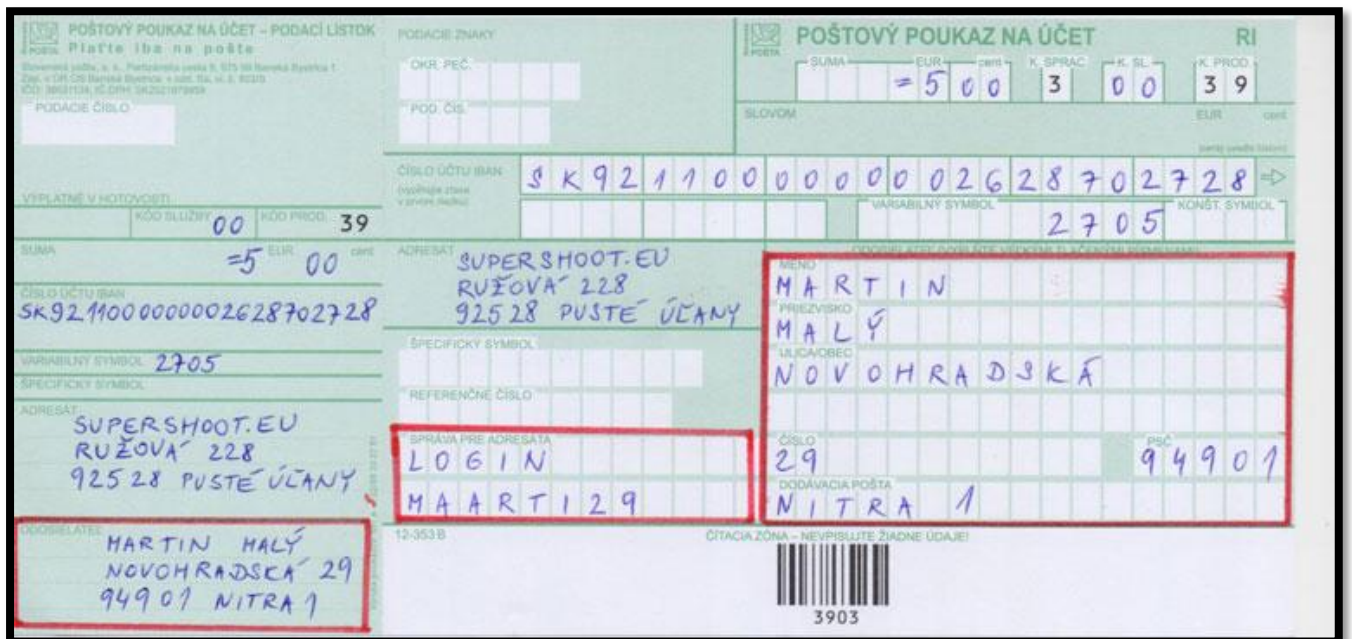 POŠTOVÝ POUKAZ NA ÚČET – PODACÍ LÍSTOK
Plaťte iba na pošte
POŠTA
Slovenská pošta, a. s., Partizánska cesta 9, 975 99 Banská Bystrica 1
PODACIE ČÍSLO
VÝPLATNÉ V HOTOVOSTI
KÓD SLUŽBY 00 KÓD PROD. 39
SUMA =5 EUR 00 cent
ČÍSLO ÚČTU IBAN
SK9211000000002628702728
VARIABILNÝ SYMBOL 2705
ŠPECIFICKÝ SYMBOL
ADRESÁT
SUPERSHOOT.EU
RUŽOVÁ 228
92528 PUSTÉ ÚĽANY
ODOSIELATEĽ
MARTIN MALÝ
NOVOHRADSKÁ 29
94901 NITRA 1
PODACIE ZNAKY
OKR. PEČ.
POD. ČÍS.
POŠTA
POŠTOVÝ POUKAZ NA ÚČET RI
SUMA EUR cent K. SPRAC. K. SL. K. PROD.
=500 3 00 39
SLOVOM EUR cent
ČÍSLO ÚČTU IBAN
SK9211000000002628702728
VARIABILNÝ SYMBOL KONŠT. SYMBOL
2705
ADRESÁT
SUPERSHOOT.EU
RUŽOVÁ 228
92528 PUSTÉ ÚĽANY
ŠPECIFICKÝ SYMBOL
REFERENČNÉ ČÍSLO
SPRÁVA PRE ADRESÁTA
LOGIN
MAARTI29
12-353 B
MENO
MARTIN
PRIEZVISKO
MALÝ
ULICA/OBEC
NOVOHRADSKÁ
ČÍSLO PSČ
29 94901
DODÁVACIA POŠTA
NITRA 1
ČÍTACIA ZÓNA – NEVPISUJTE ŽIADNE ÚDAJE!
3903